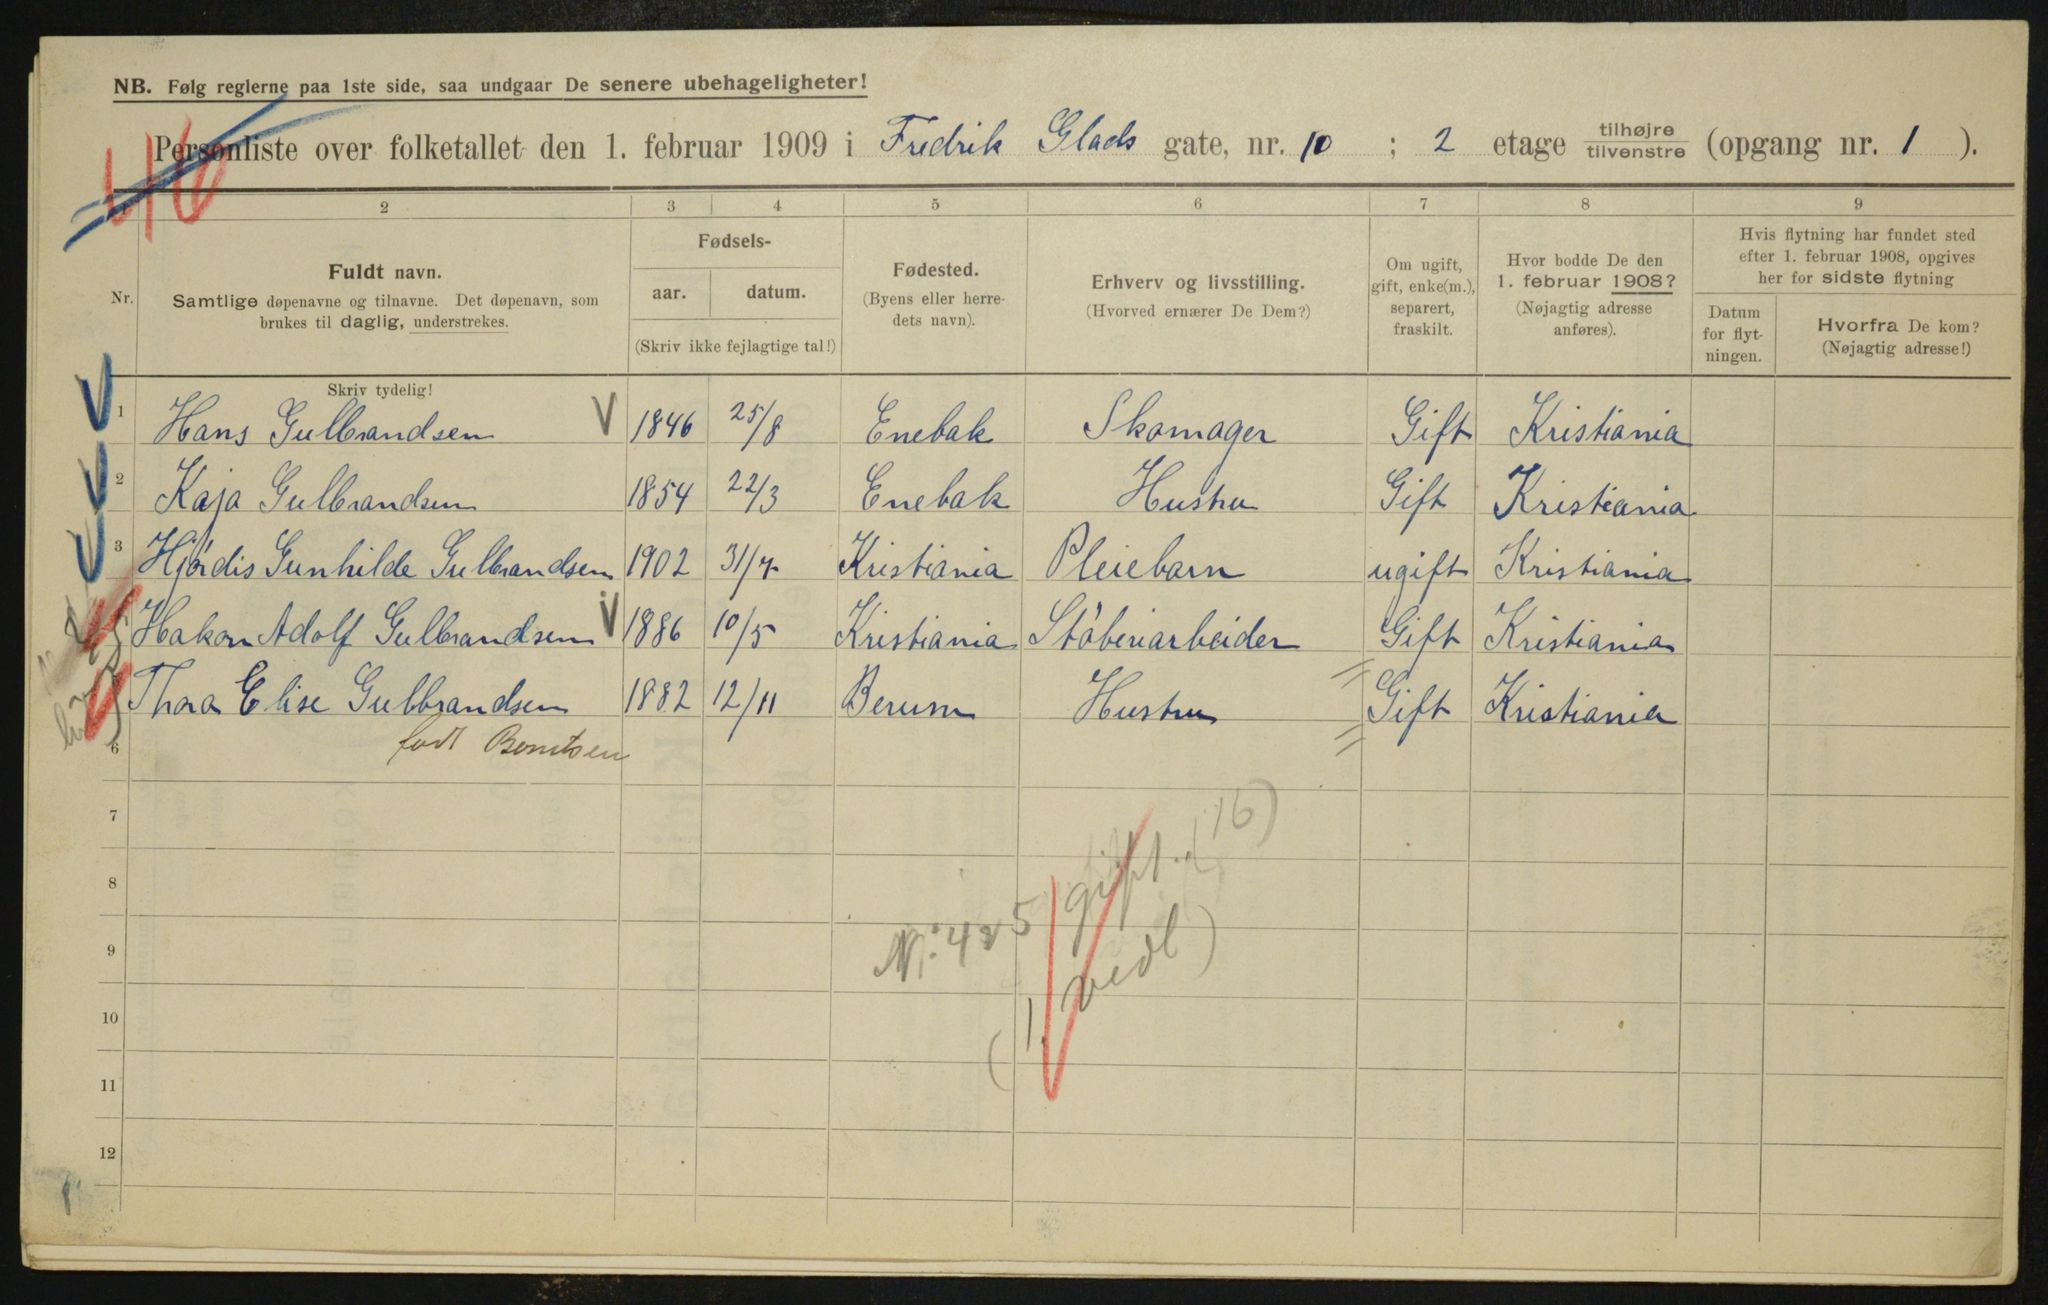 NB. Følg reglerne paa 1ste side, saa undgaar De senere ubehageligheter!
46
Personliste over folketallet den 1. februar 1909 i Fredrik Glads gate, nr. 10 ; 2 etage tilhøjre tilvenstre (opgang nr. 1 ).
1 2 3 4 5 6 7 8 9
Nr.
Fuldt navn.
Samtlige døpenavne og tilnavne. Det døpenavn, som
brukes til daglig, understrekes.
Skriv tydelig!
Fødsels-
aar. datum.
(Skriv ikke fejlagtige tal!)
Fødested.
(Byens eller herre-
dets navn).
Erhverv og livsstilling.
(Hvorved ernærer De Dem?)
Om ugift,
gift, enke(m.),
separert,
fraskilt.
Hvor bodde De den
1. februar 1908?
(Nøjagtig adresse
anføres).
Hvis flytning har fundet sted
efter 1. februar 1908, opgives
her for sidste flytning
Datum
for flyt-
ningen.
Hvorfra De kom?
(Nøjagtig adresse!)
1 Hans Gulbrandsen 1846 25/8 Enebak Skomager Gift Kristiania
2 Kaja Gulbrandsen 1854 22/3 Enebak Hustru Gift Kristiania
3 Hjørdis Gunhilde Gulbrandsen 1902 31/7 Kristiania Pleiebarn ugift Kristiania
Hakon Adolf Gulbrandsen 1886 10/5 Kristiania Støberiarbeider Gift Kristiania
Thora Elise Gulbrandsen 1882 12/11 Berum Hustru Gift Kristiania
6 født Berntsen
7
8
9
10
11
12
Nr. 4 & 5 gift. (16)
(1 vedl)